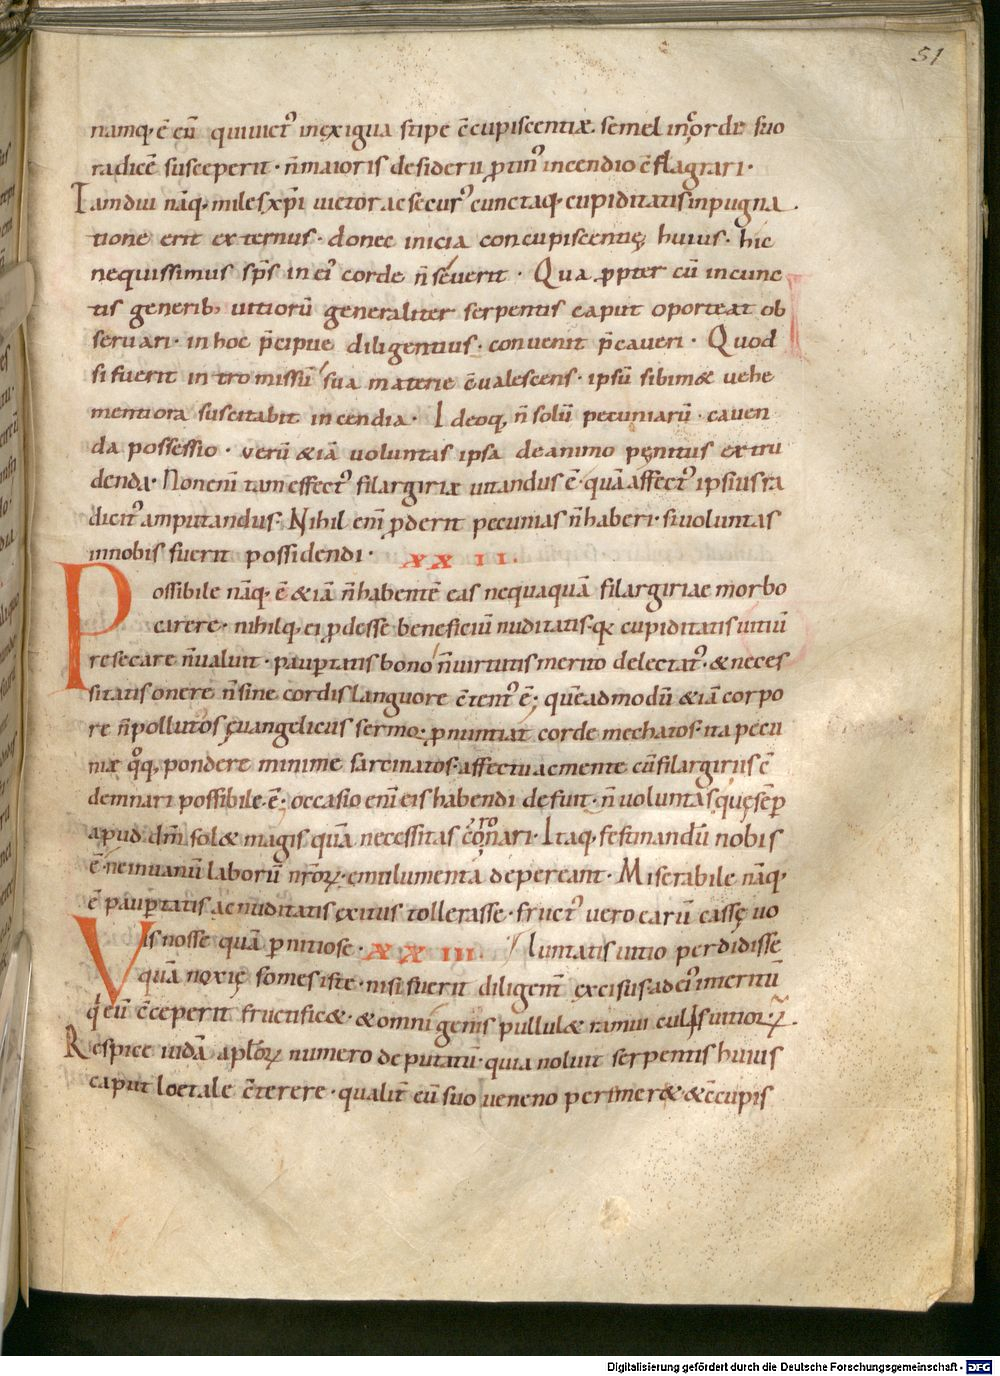 51
namq· ē eū quiuict᷒ inexigua stipe c̄cupiscentiæ. semel in corde suo
radicē susceperit · n̄ maioris desiderii ꝓtin᷒ incendio c̄flagrari ·
Iamdiu nāq· miles xp̄i uictor ac secur᷒ cunctaq· cupiditatis inpugna
tione erit externus · donec inicia concupiscentię huius · hic
nequissimus sp̄s in ei᷒ corde n̄ seuerit · Qua ꝓpter cū in cunc
tis generib; uitiorū generaliter serpentis caput oporteat ob
seruari · in hoc p̄cipue diligentius · conuenit p̄caueri · Quod
si fuerit intromissū sua materie c̄ualescens · ipsū sibimet uehe
mentiora suscitabit incendia · Ideoq; n̄ solū pecuniarū · cauen
da possessio · uerū &iā uoluntas ipsa de animo pęnitus extru
denda · Non eni tam effect᷒ filargiriæ uitandus ē · quā affect᷒ ipsius ra
dicit᷒ amputandus · Nihil eni ꝓderit pecunias n̄ haberi · si uoluntas
in nobis fuerit possidendi · XXII.
Possibile nāq· ē &iā n̄ habentē eas nequaquā filargiriae morbo
carere · nihilq· ei ꝓdesse beneficiū nuditatis · qui cupiditatis uitiū
resecare n̄ ualuit · paup̱tatis bono n̄ uirtutis merito delectat᷒ · & neces
sitatis onere n̄ sine cordis languore c̄tent᷒ ē; quēadmodū &iā corpo
re n̄ pollutos ęuangelicus sermo · ꝓnuntiat corde mechatos · ita pecu
niæ qͦq; pondere minime sarcinatos · affectu ac mente cū filargiris c̄
demnari possibile · ē; occasio eni eis habendi defuit · n̄ uoluntas quę sēp̱
apud dm̄ solet magis quā necessitas coronari · Itaq; festinandū nobis
ē · ne in uanū laborū nr̄orꝝ · emulumenta depereant · Miserabile nāq·
ē paup̱tatis ac nuditatis exitus tollerasse · fruct᷒ uero earū cassę uo
luntatis uitio perdidisse
Vis nosse quā p̱nitiose · XXIII.
quā noxię fomes iste · nisi fuerit diligent̄ excisus ad ei᷒ interitū
q̇ eū c̄ceperit fructificet · & omnigenis pullulet ramusculis uitiorꝝ.
Respice iudā apl̄orꝝ numero deputatū · quia noluit serpentis huius
caput loetale c̄terere · qualit̄ eū suo ueneno perimeret & c̄cupis
Digitalisierung gefördert durch die Deutsche Forschungsgemeinschaft - DFG